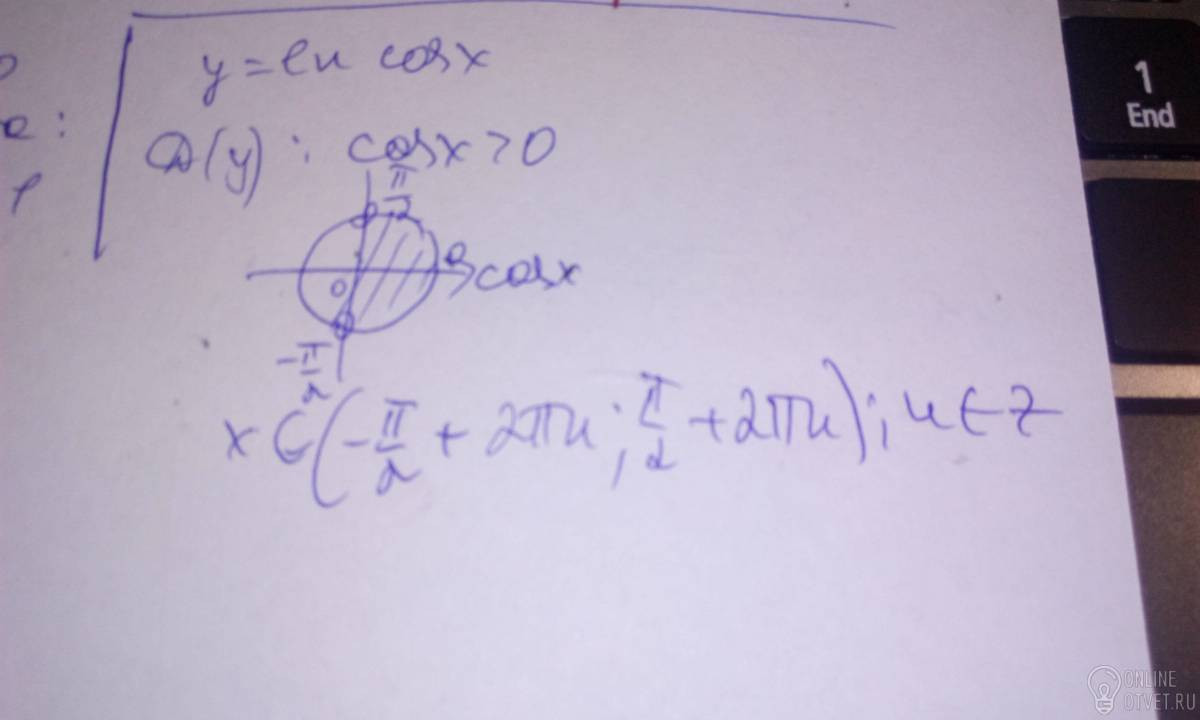 y = ln cosx
D(y) : cosx > 0
π/2
0
cosx
-π/2
x ∈ (-π/2 + 2πn ; π/2 + 2πn) ; n ∈ Z
1
End
ONLINE
OTVET.RU